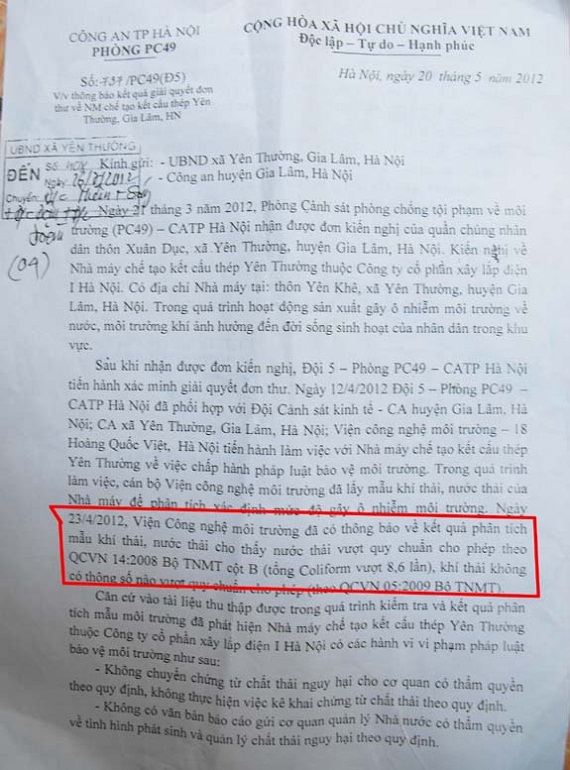 CÔNG AN TP HÀ NỘI
PHÒNG PC49
CỘNG HÒA XÃ HỘI CHỦ NGHĨA VIỆT NAM
Độc lập – Tự do – Hạnh phúc
Số: 737/PC49(Đ5)
V/v thông báo kết quả giải quyết đơn
thư về NM chế tạo kết cấu thép Yên
Thường, Gia Lâm, HN
Hà Nội, ngày 20 tháng 5 năm 2012
UBND XÃ YÊN THƯỜNG
ĐẾN
Số:
Ngày:
Chuyển:
(04)
Kính gửi: - UBND xã Yên Thường, Gia Lâm, Hà Nội
- Công an huyện Gia Lâm, Hà Nội
Ngày 21 tháng 3 năm 2012, Phòng Cảnh sát phòng chống tội phạm về môi
trường (PC49) – CATP Hà Nội nhận được đơn kiến nghị của quần chúng nhân
dân thôn Xuân Dục, xã Yên Thường, huyện Gia Lâm, Hà Nội. Kiến nghị về
Nhà máy chế tạo kết cấu thép Yên Thường thuộc Công ty cổ phần xây lắp điện
I Hà Nội. Có địa chỉ Nhà máy tại: thôn Yên Khê, xã Yên Thường, huyện Gia
Lâm, Hà Nội. Trong quá trình hoạt động sản xuất gây ô nhiễm môi trường về
nước, môi trường khí ảnh hưởng đến đời sống sinh hoạt của nhân dân trong khu
vực.
Sau khi nhận được đơn kiến nghị, Đội 5 – Phòng PC49 – CATP Hà Nội
tiến hành xác minh giải quyết đơn thư. Ngày 12/4/2012 Đội 5 – Phòng PC49 –
CATP Hà Nội đã phối hợp với Đội Cảnh sát kinh tế - CA huyện Gia Lâm, Hà
Nội; CA xã Yên Thường, Gia Lâm, Hà Nội; Viện công nghệ môi trường – 18
Hoàng Quốc Việt, Hà Nội tiến hành làm việc với Nhà máy chế tạo kết cấu thép
Yên Thường về việc chấp hành pháp luật bảo vệ môi trường. Trong quá trình
làm việc, cán bộ Viện công nghệ môi trường đã lấy mẫu khí thải, nước thải của
Nhà máy để phân tích xác định mức độ gây ô nhiễm môi trường. Ngày
23/4/2012, Viện Công nghệ môi trường đã có thông báo về kết quả phân tích
mẫu khí thải, nước thải cho thấy nước thải vượt quy chuẩn cho phép theo
QCVN 14:2008 Bộ TNMT cột B (tổng Coliform vượt 8,6 lần), khí thải không
có thông số nào vượt quy chuẩn cho phép (theo QCVN 05:2009 Bộ TNMT).
Căn cứ vào tài liệu thu thập được trong quá trình kiểm tra và kết quả phân
tích mẫu môi trường đã phát hiện Nhà máy chế tạo kết cấu thép Yên Thường
thuộc Công ty cổ phần xây lắp điện I Hà Nội có các hành vi vi phạm pháp luật
bảo vệ môi trường như sau:
- Không chuyển chứng từ chất thải nguy hại cho cơ quan có thẩm quyền
theo quy định, không thực hiện việc kê khai chứng từ chất thải theo quy định.
- Không có văn bản báo cáo gửi cơ quan quản lý Nhà nước có thẩm quyền
về tình hình phát sinh và quản lý chất thải nguy hại theo quy định.